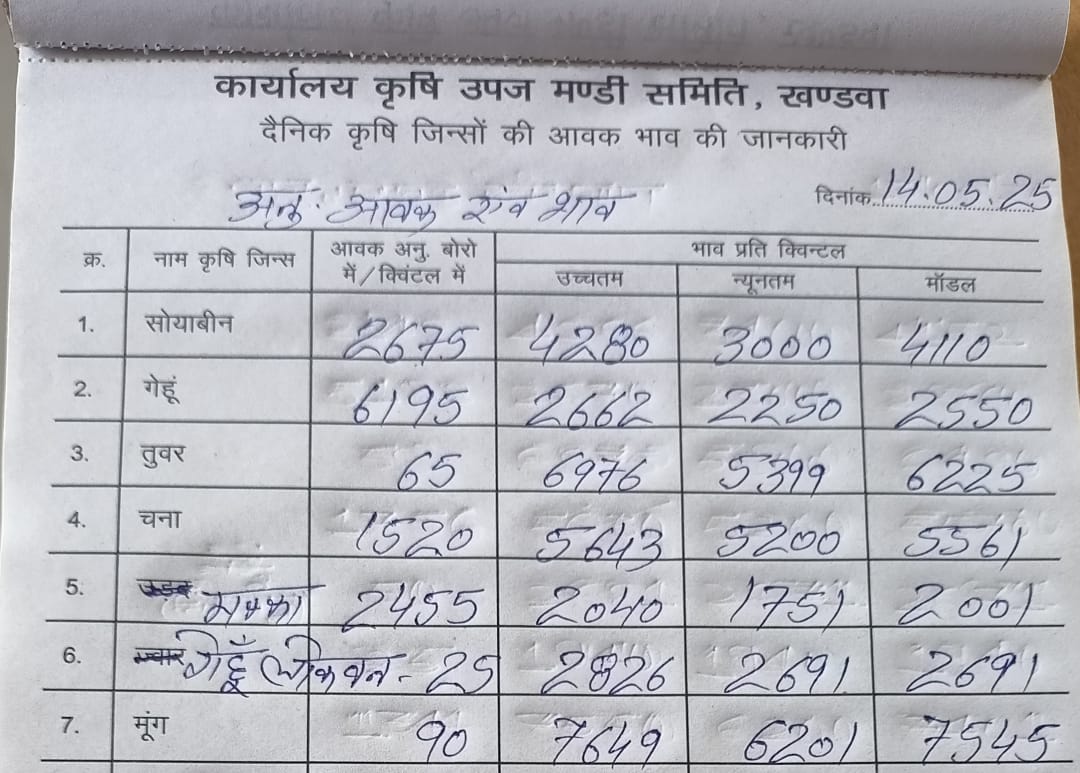 कार्यालय कृषि उपज मण्डी समिति, खण्डवा
दैनिक कृषि जिन्सों की आवक भाव की जानकारी
अनु. आवक एंव भाव दिनांक 14.05.25
क्र. नाम कृषि जिन्स आवक अनु. बोरो में/क्विंटल में भाव प्रति क्विन्टल
उच्चतम न्यूनतम मॉडल
1. सोयाबीन 2675 4280 3000 4110
2. गेहूं 6195 2662 2250 2550
3. तुवर 65 6976 5399 6225
4. चना 1520 5643 5200 5561
5. उडद मक्का 2455 2040 1751 2001
6. ज्वार गेहूँ लोकवन - 25 2826 2691 2691
7. मूंग 90 7649 6201 7545